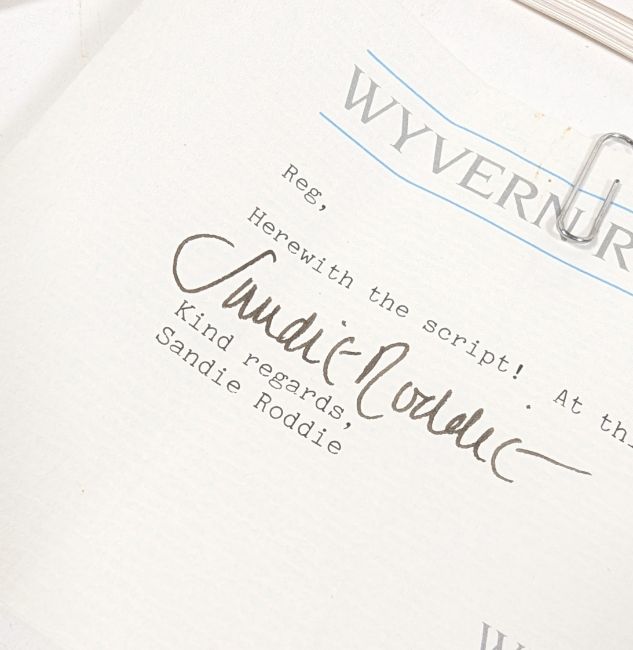 WYVERN R
Reg,
Herewith the script! At thi
Sandie Roddie
Kind regards,
Sandie Roddie
W